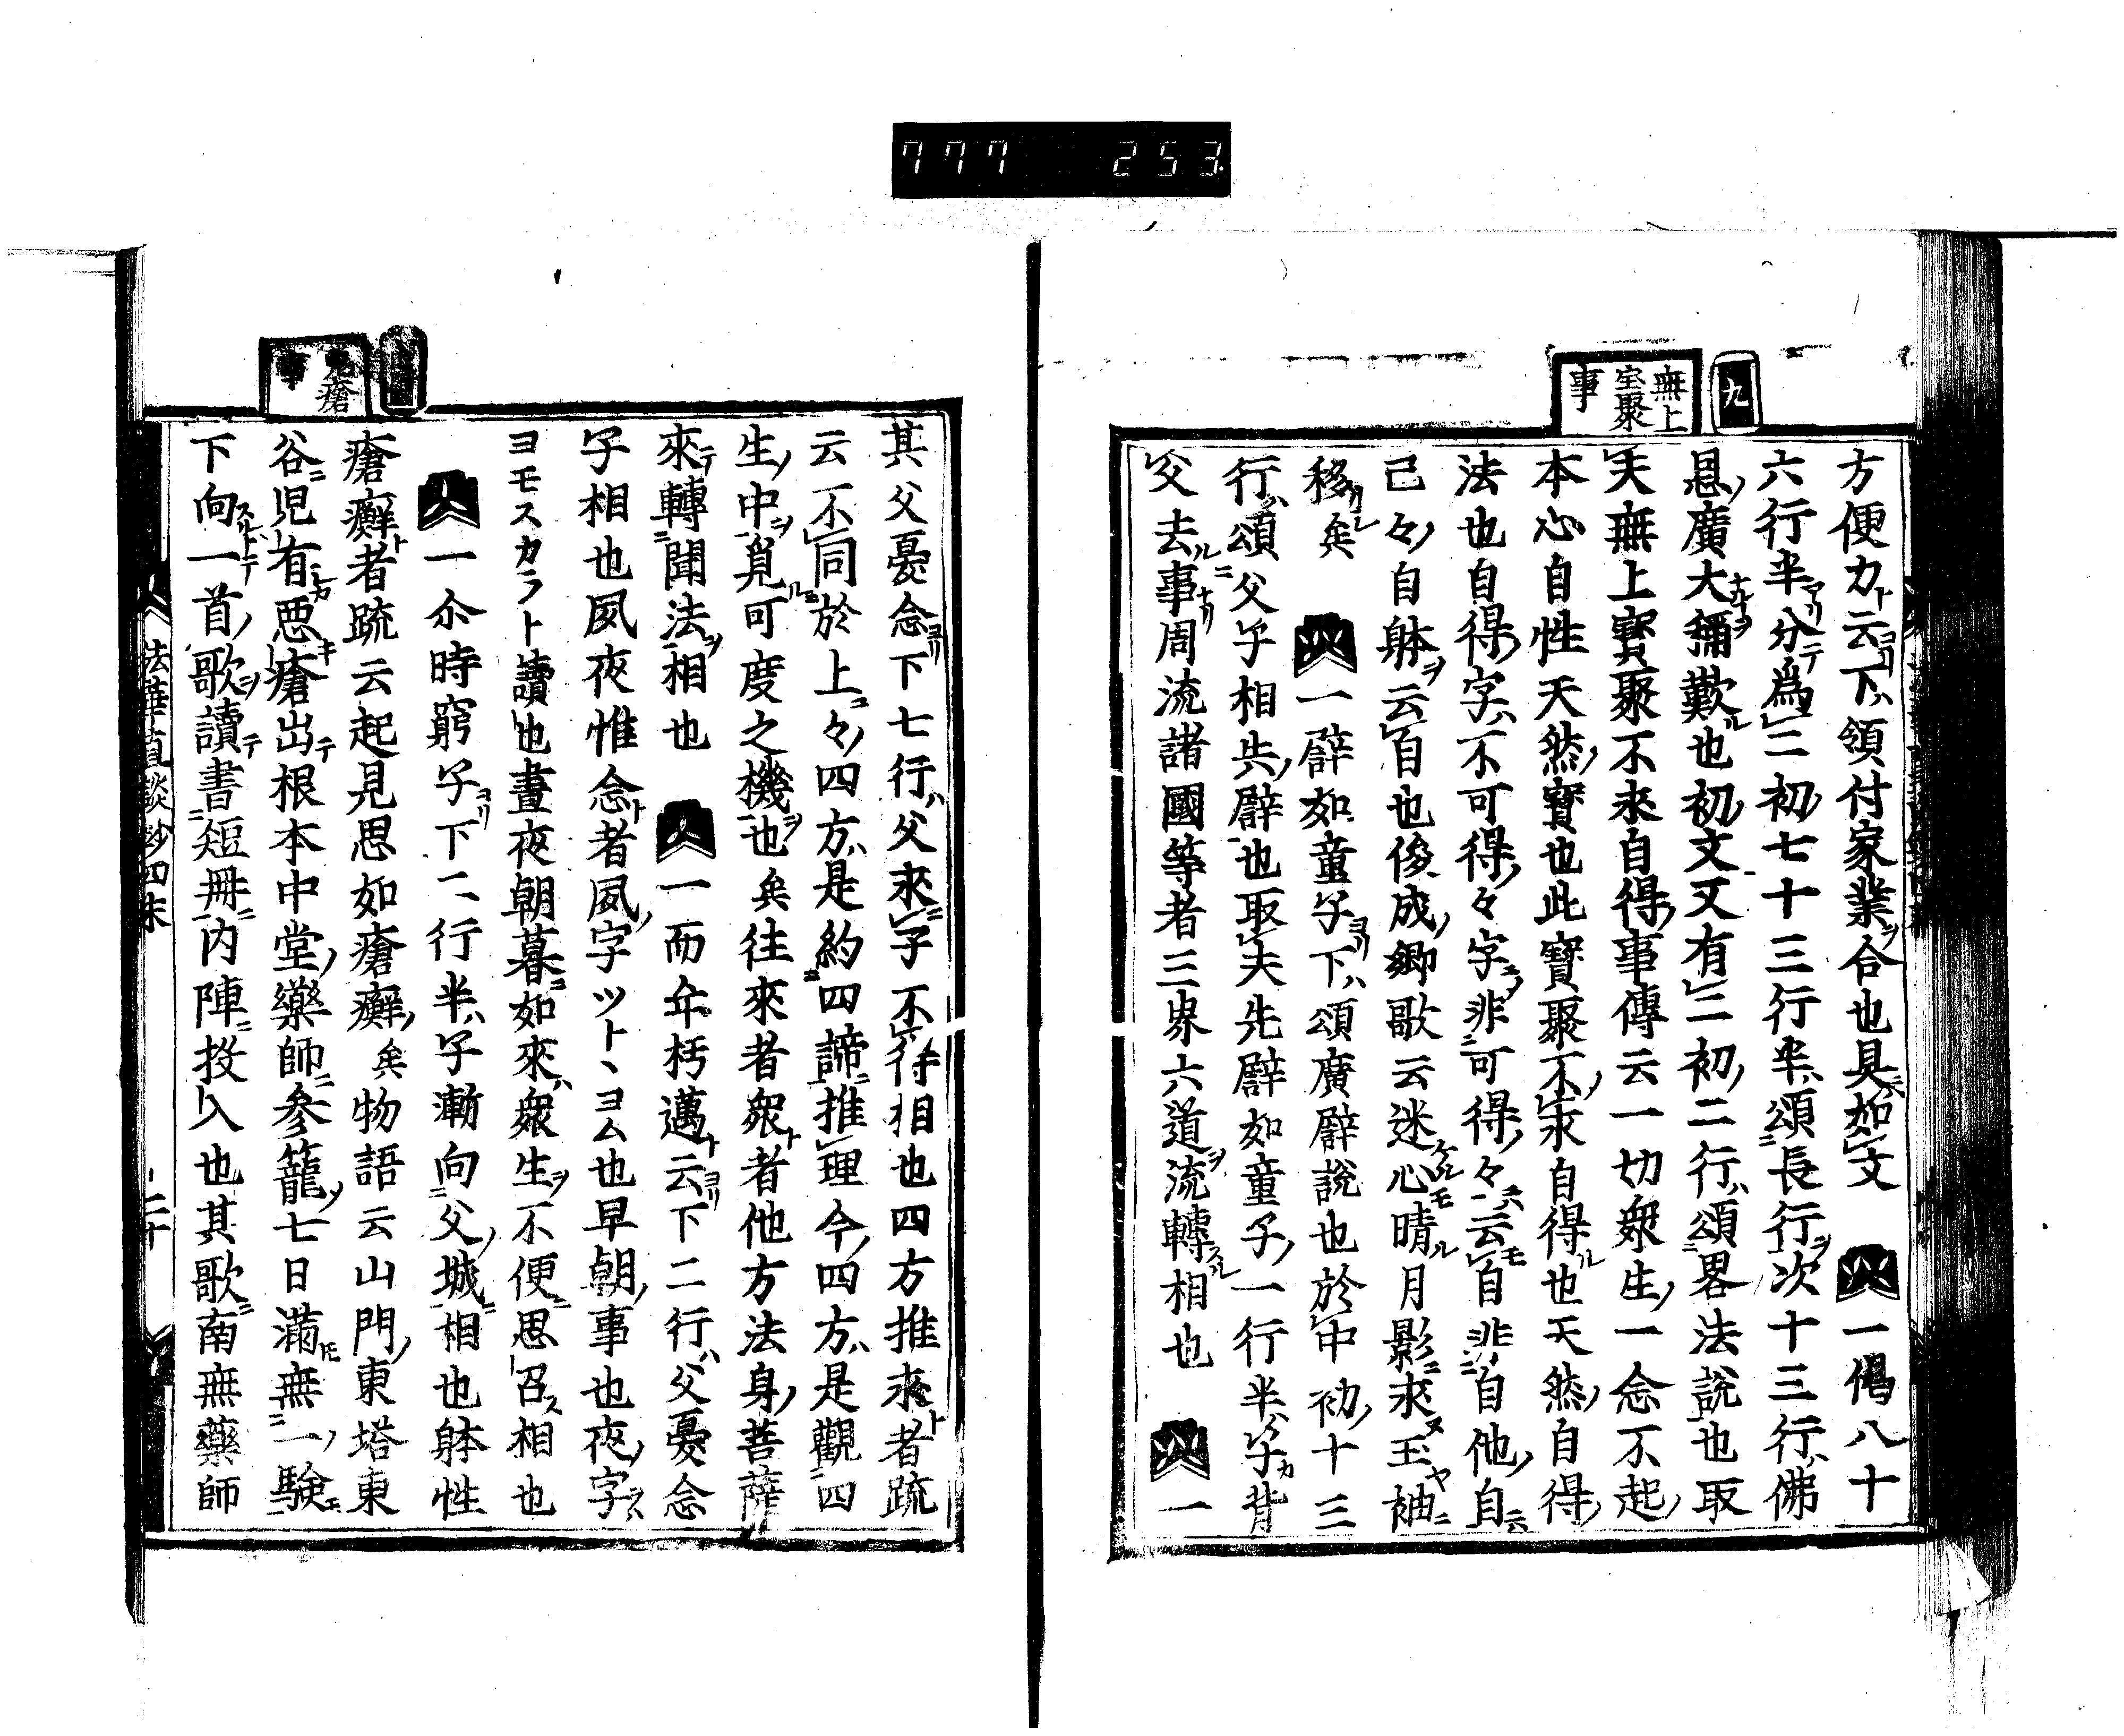 777 253
九
無上
宝聚
事
方便力ト云ヨリ下ハ領付家業ヲ合也具ニハ如文 一偈八十
六行半アリ分テ為二初七十三行半ハ頌長行ヲ次十三行ハ佛
恩ノ廣大ナルヿヲ稱歎ル也初ノ文又有二初ノ二行ハ頌畧法説也取
夫無上寶聚不求自得ノ事傳云一切衆生ノ一念不起ノ
本心自性天然ノ寶也此寶聚不ノ求自得ル也天然ノ自得ノ
法也自得ノ字ハ不可得ノ々字ヲ非可得ノ々云モ自非自他ノ自ニハ
己々ノ自躰ヲ云自也後成卿歌云迷ケル心モ晴ル月影ニ求ヌ玉ヤ袖ニ
移リシ矣 一譬如童子ヨリ下ハ頌廣譬説也於中初ノ十三
行ハ頌父子相失ノ譬也取夫先譬如童子ノ一行半ハ子カ背
父去ルニ事ナリ周流諸國等者三界六道ヲ流轉スル相也 一
其父憂念ヨリ下七行ハ父求子不待相也四方推求ト者疏
云不同於上ニ々ノ四方ハ是約四諦推理今ノ四方ハ是觀四
生ノ中ヲ覓可度之機也ヲ矣往來者衆ト者他方法身ノ菩薩
來テ轉ニ聞法ヲ相也 一而年朽邁ト云ヨリ下二行ハ父憂念
子相也夙夜惟念ト者夙ノ字ツトヽヨム也早朝ノ事也夜ノ字ヲハ
ヨモスカラト讀也晝夜朝暮ニ如來ハ衆生ヲ不便ニ思召ス相也
一尒時窮子ヨリ下二行半ハ子漸向父ノ城ニ相也躰性
瘡癬ト者疏云起見思如瘡癬ノ矣物語云山門ノ東塔東
谷ニ児有シカ悪キ瘡出テ根本中堂ノ藥師ニ参籠ノ七日満トモ無一ノ験モ
下向スルトテ一首ノ歌ヲ讀テ書短冊ニ内陣ニ投入也其歌ニ南無藥師
瘡
事
法華直談鈔四末
二十